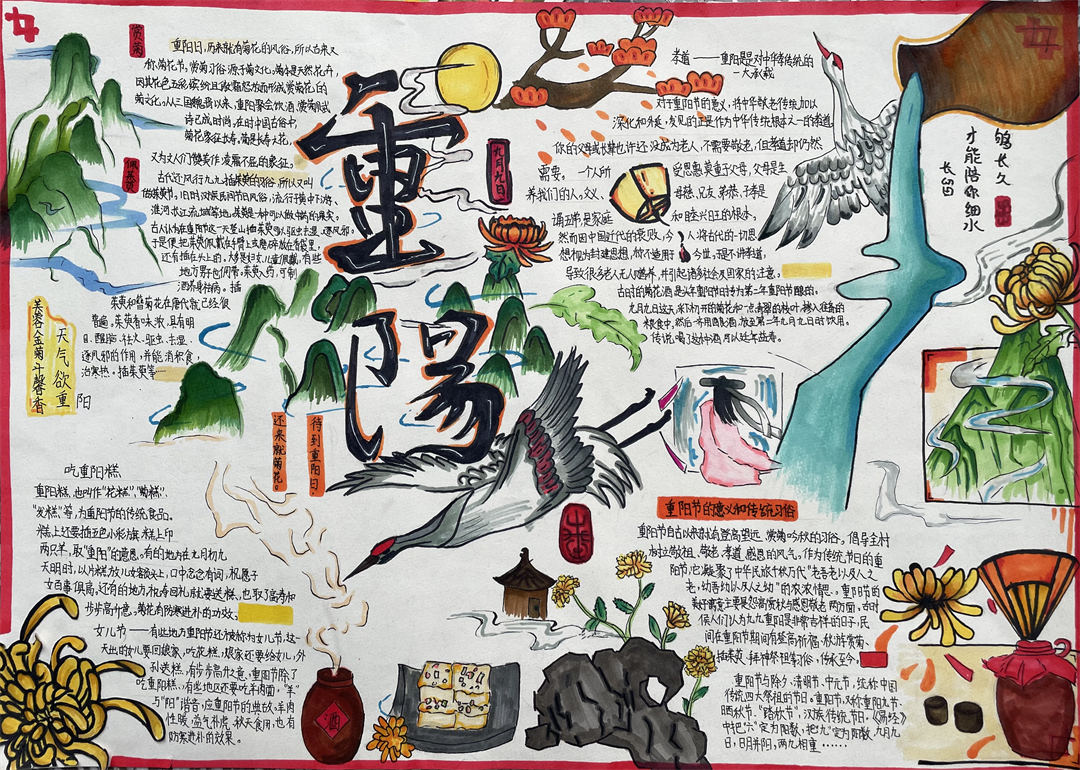 赏菊
重阳日,历来就有菊花的风俗,所以古来又
称菊花节,赏菊习俗源于菊文化。菊本是天然花卉,
因其花色五彩缤纷且傲霜怒放而形成赏菊花的
菊文化。从三国魏晋以来,重阳聚会饮酒、赏菊赋诗
已成时尚。在时中国古俗中,
菊花象征长寿,菊是长寿之花,
又为文人们赞美作凌霜不屈的象征。
古代还风行九九插茱萸的习俗,所以又叫
佩茱萸
茱萸节,旧时汉族民间节日风俗,流行于黄河中下游、
淮河
长江流域等地。茱萸是一种可以做中药的果实。
古人认为在重阳节这一天登山插茱萸可以驱虫去湿、逐风邪。
于是便把茱萸佩戴在手臂上或磨碎放在香袋里,
还有插在头上的,大多是妇女、儿童佩戴,有些
地方男子也佩带。茱萸入药,可制
酒养身祛病。插
茱萸和簪菊花在唐代就已经很
普遍。茱萸香味浓,具有明
目、醒脑、祛火、驱虫、去湿、
逐风邪的作用,并能消积食,
治寒热。插茱萸等
芙蓉金菊斗馨香
天气欲重
阳
重陽
九月九日
待到重阳日,
还来就菊花。
孝道——重阳是对中华传统的
一大承载
对于重阳节的意义,将中华敬老传统加以
深化和外延,发见的正是作为中华传统根本之一的孝道
你的父母或长辈也许还没成为老人,不需要敬老,但孝道却仍然
需要。
一个人所
受恩惠莫重于父母,父母是生
养我们的人。义、
母慈、兄友、弟恭、子孝是
谓五常,是家庭
和睦兴旺的根本,
然而因中国近代的衰败,今
人将古代的一切思
想视为封建思想,
今世,提不讲孝道,
导致很多老人无人赡养,并引起诸多社会及国家的注意。
古时的菊花酒是头年重阳节时专为第二年重阳节酿的。
九月九日这天,采下初开的菊花和一点青翠的枝叶,掺入准备的
粮食中,然后一齐用来酿酒,放至第二年九月九日时饮用。
传说,喝了这种酒,可以延年益寿。
够长久
才能陪你细水
长留
吃重阳糕
重阳糕,也叫作“花糕”、“菊糕”、
“发糕”等,为重阳节的传统食品。
糕上还要插五色小彩旗,糕上印
两只羊,取“重阳”的意思。有的地方在九月初九
天明时,以片糕放儿女额头上,口中念念有词,祝愿子
女百事俱高,还有的地方,权寿回礼,就要送糕,也取了高寿和
步步高升意。菊花有防寒进补的功效;
女儿节——有些地方重阳节还被称为女儿节,这一
天出的女儿要回娘家,吃花糕,娘家还要给女儿,外
孙送糕,有步步高升之意。重阳节除了
吃重阳糕,有些地区还要吃羊肉面,“羊”
与“阳”谐音,应重阳节的典故,羊肉
性暖、高气补虚,秋天食用,也有
防寒进补的效果。
酒
重阳节的意义和传统习俗
重阳节自古以来就有登高望远、赏菊吟秋的习俗,倡导全村
树立敬祖、敬老、孝道、感恩的风气。作为传统节日的重
阳节,它凝聚了中华民族千秋万代“老吾老以及人之
老,幼吾幼以及人之幼”的衣衣情愫。重阳节的
美好寓意主要是登高赏秋与感恩敬老两方面,古时
候人们认为九九重阳是非常吉祥的日子,民
间在重阳节期间有登高祈福、秋游赏菊、
插茱萸、拜神祭祖等习俗,传承至今。
重阳节与除夕、清明节、中元节,统称中国
传统四大祭祖的节日。重阳节,又称重阳九节、
晒秋节、“踏秋节”,汉族传统节日,《易经》
中把“六”定为阴数,把“九”定为阳数,九月九
日,日月并阳,两九相重……